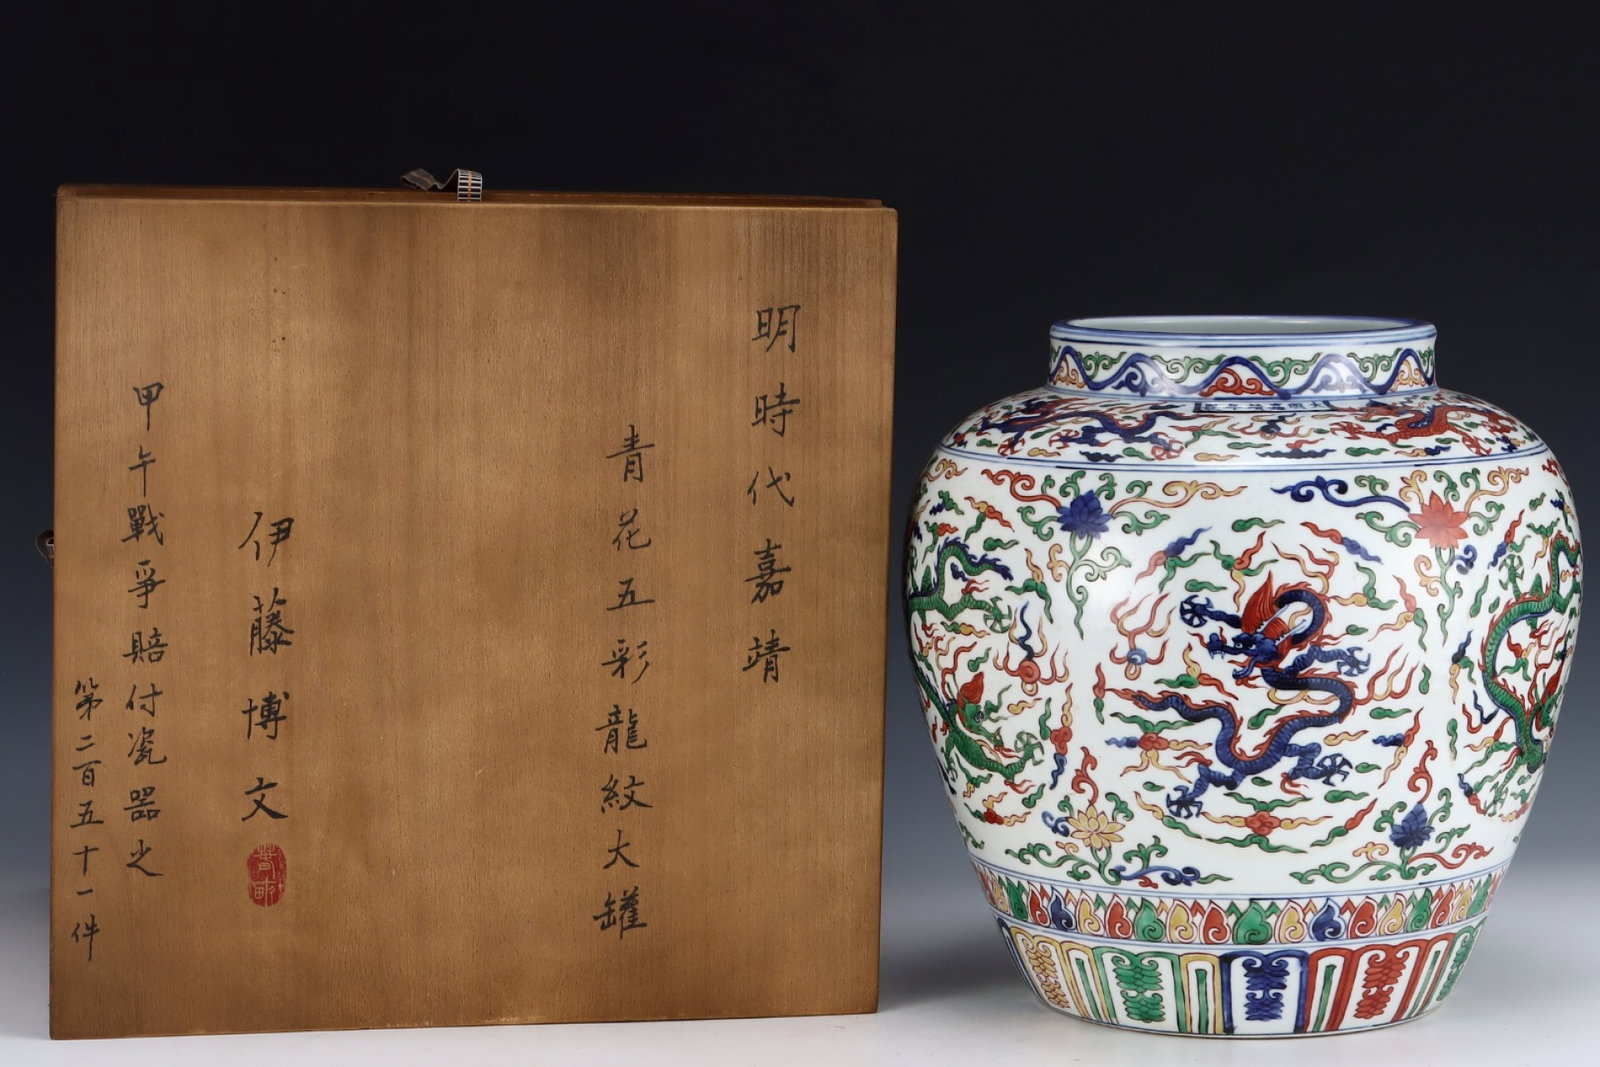 明時代嘉靖
青花五彩龍紋大罐
伊藤博文
甲午戰爭賠付瓷器之
第二百五十一件